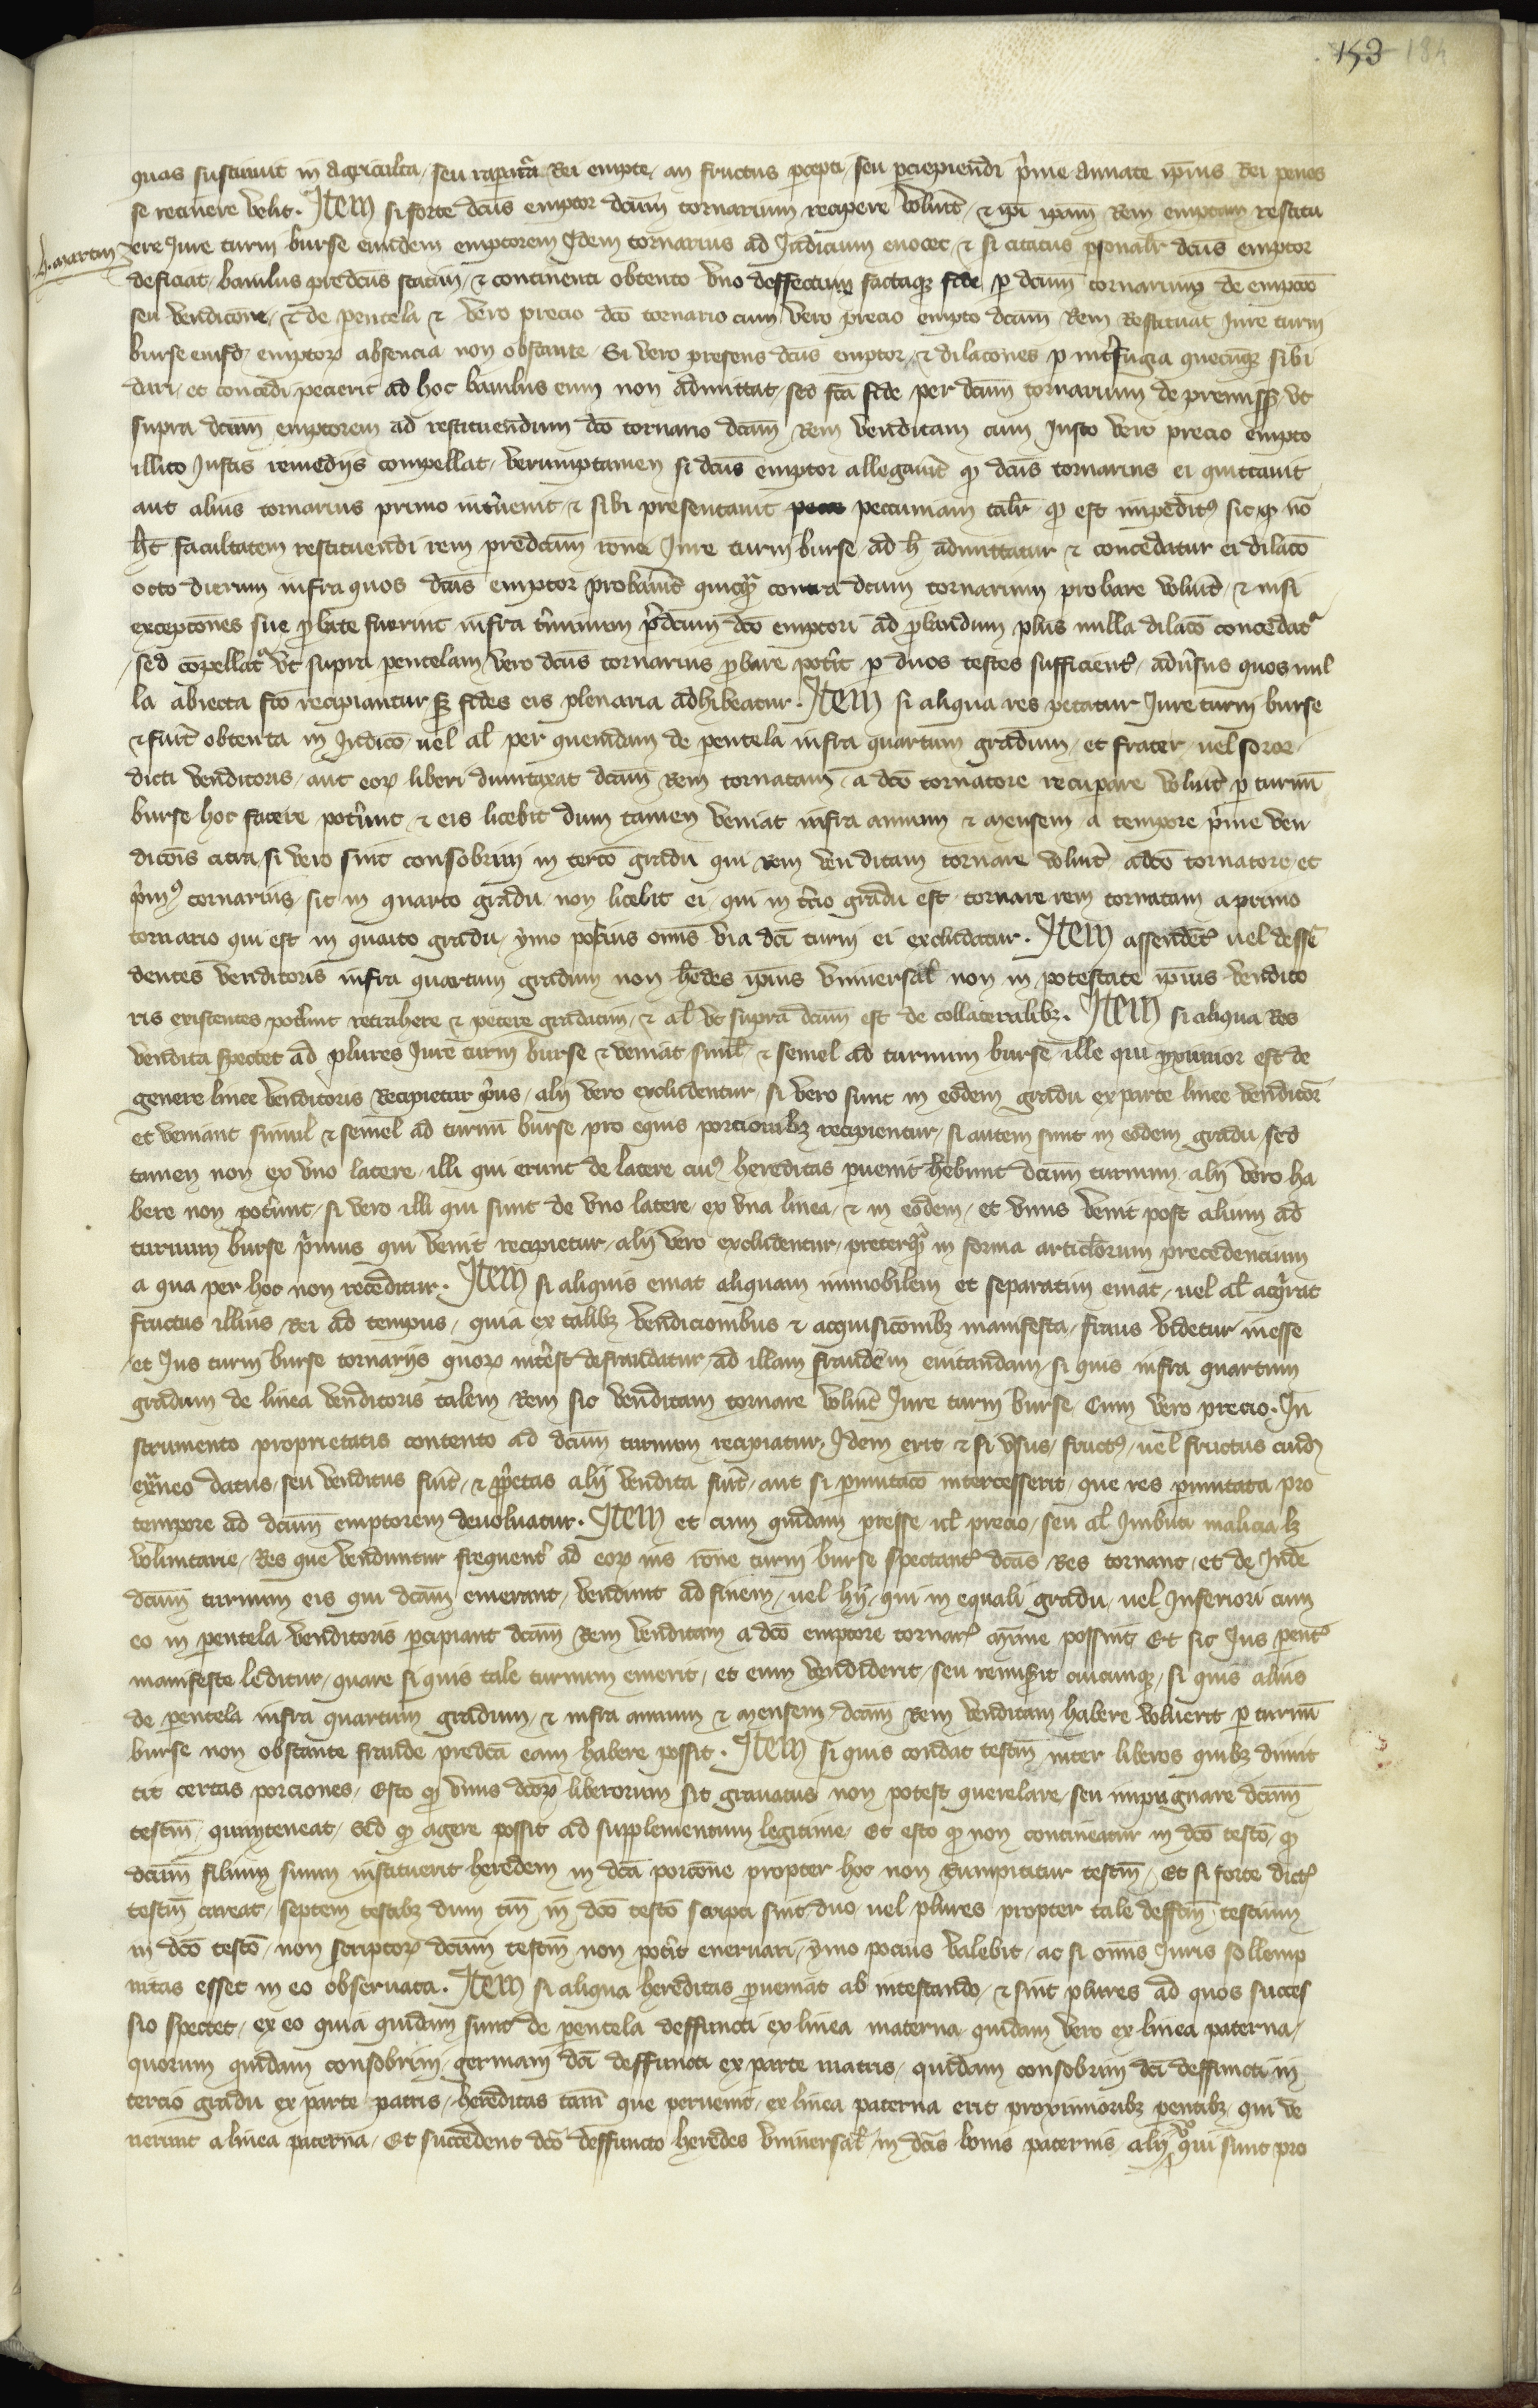 153 184
quas sustinuit in agricult̃a seu rapat̃a Rei empte, an fructus p̃cepti seu p̃cipiendi p̃me annate ip̃ius Rei penes
se retinere velit. Item si forte dcũs emptor dcũm tornarium recipere voluit̃ & ip̃i ip̃am Rem emptam restitu
b. martin
ere Iure turni burse eundem emptorem Idem tornarius ad Iudicium euocet & si citatus p̃sonalr̃ dcũs emptor
deficiat, baiulus predcũs statim & continenti obtento vno deffectum factaq̃ fide p̃ dcũm tornarium de empcõe
seu vendicõne, & de pentela & vero precio dcõ tornario cum vero precio empto dcãm Rem Restituat Iure turni
burse eiusd̃ emptorꝝ absencia non obstante. Si vero presens dcũs emptor & dilacõnes p̃ mt̃fugia quecũq̃ sibi
dari et concedi pecierit ad hoc baiulus eum non admittat, sed fcã fide per dcũm tornarium de premissꝫ vt
supra dcũm emptorem ad restituendum dcõ tornario dcãm Rem venditam cum Iusto vero precio empto
illico Iustis remedijs compellat, verumptamen si dcũs emptor allegauit̃ ꝙ dcũs tornarius ei quittauit
aut alius tornarius primo int̃uenit & sibi presentauit peccuniam talr̃ ꝙ est impeditꝰ sic ꝙ nõ
ht̃ facultatem restituendi rem predcãm rõne Iure turni burse ad h̃ admittatur & concedatur ei dilacõ
octo dierum infra quos dcũs emptor probauit̃ quicq̃ contra dcũm tornarium probare voluit̃ & nisi
excepcõnes sue p̃bate fuerint infra t̃minum p̃dcũm dcõ emptori ad p̃bandum plus nulla dilacõ concedatr̃
sed cõpellatr̃ vt supra pentelam vero dcũs tornarius p̃bare pot̃it p̃ duos testes sufficientꝰ, adũsus quos nul
la abiecta fcõ recipiantur sꝫ fides eis plenaria adhibeatur. Item si aliqua res petatur Iure turni burse
& fuit̃ obtenta in Iudicõ uel al̃ per quemdam de pentela infra quartum gradum et frater uel soror
dicti venditoris aut eoꝝ liberi dumtaxat dcãm Rem tornatam a dcõ tornatore recuperare voluit̃ p̃ turnũ
burse hoc facere pot̃unt & eis licebit dum tamen veniat infra annum & mensem a tempore p̃me ven
dicõis citra, si vero sint consobrini in tercõ gradu qui rem venditam tornare voluit̃ a dcõ tornatore et
p̃mꝰ tornarius sit in quarto gradu non licebit ei qui in t̃cio gradu est tornare rem tornatam a primo
tornario qui est in quarto gradu, ymo pocius om̃is via dcĩ turni ei excludatur. Item assendetꝰ uel desse
dentes venditoris infra quartum gradum non hẽdes ip̃ius vniuersal̃ non in potestate ip̃ius vendito
ris existentes pot̃unt retrahere & petere gradatim & al̃ vt supra dcũm est de collateralibꝫ. Item si aliqua Res
vendita spectet ad plures Iure turni burse & veniat simul̃ & semel ad turnum burse ille qui p̃ximior est de
genere linee venditoris Recipietur p̃us, alij vero excludentur, si vero sunt in eodem gradu ex parte linee venditor̃
et veniant simul & semel ad turnũ burse pro equis porcionibꝫ recipientur, si autem sunt in eodem gradu sed
tamen non ex vno latere, illi qui erunt de latere cuiꝰ hereditas p̃uenit hẽbunt dcũm turnum alij vero ha
bere non pot̃unt, si vero illi qui sunt de vno latere ex vna linea & in eodem et vnus venit post alium ad
turnum burse p̃mus qui venit recipietur, alij vero excludentur, preterq̃ in forma articl̃orum precedencium
a qua per hoc non receditur. Item si aliquis emat aliquam immobilem et separatim emat uel al̃ acq̃rat
fructus illius Rei ad tempus, quia ex talibꝫ vendicionibus & acquisicõnibꝫ manifesta fraus videtur inesse
et Ius turni burse tornarijs quoꝝ int̃est defraudatur, ad illam fraudem euitandam, si quis infra quartum
gradum de linea venditoris talem Rem sic venditam tornare voluit̃ Iure turni burse Cum vero precio. In
strumento proprietatis contento ad dcũm turnum recipiatur, Idem erit & si vsus fructꝰ, uel fructus cuidã
ext̃neo datus seu venditus fuit̃ & p̃prietas alij vendita fuit̃, aut si p̃mutacõ intercesserit que res p̃mutata pro
tempore ad dcũm emptorem deuoluatur. Item et cum quidam p̃cesse uel precio seu al̃ Imbuti malicia lꝫ
voluntarie Res que venduntur frequentꝰ ad eoꝝ ius rõne turni burse spectantꝰ dcãs Res tornant et de Inde
dcũm turnum eis qui dcãm emerant vendunt ad finem uel hij qui in equali gradu uel Inferiori cum
eo in pentela venditoris p̃cipiant dcãm Rem venditam a dcõ emptore tornarꝰ mĩme possint Et sic Ius pentꝰ
manifeste leditur, quare si quis tale turnum emerit et eum vendiderit seu remiserit cuicunqꝫ, si quis alius
de pentela infra quartum gradum & infra annum & mensem dcãm Rem venditam habere voluerit p̃ turnũ
burse non obstante fraude predcã eam habere possit. Item si quis condat testm̃ inter liberos quibꝫ dimit
tit certas porciones, Esto ꝙ vnus dcõꝝ liberorum sit grauatus non potest querelare seu impugnare dcũm
testm̃ quinyteneat, Sed ꝙ agere possit ad supplementum legitime Et esto ꝙ non contineatur in dcõ testõ ꝙ
dcũm filium suum instituerit heredem in dcã porcõne propter hoc non Rumpitur testm̃, Et si forte dictꝰ
testm̃ careat septem testibꝫ dum tm̃ in dcõ testõ scripti sint duo uel plures propter tale deffcm̃ testium
in dcõ testõ non scriptoꝝ dcũm testm̃ non pot̃it eneruari, ymo pocius valebit ac si om̃is Iuris sollemp
nitas esset in eo obseruata. Item si aliqua hereditas p̃ueniat ab intestando & sint plures ad quos succes
sio spectet, ex eo quia quidam sunt de pentela deffuncti ex linea materna quidam vero ex linea paterna,
quorum quidam consobrini germani dcĩ deffuncti ex parte matris, quidam consobrini dcĩ deffuncti in
tercio gradu ex parte patris, hereditas tam̃ que peruenit ex linea paterna erit proximioribꝫ pentibꝫ qui ve
nerunt a linea paterna, Et succedent dcõ deffuncto heredes vniuersal̃ in dcĩs bonis paternis alij q̃ qui sunt pro